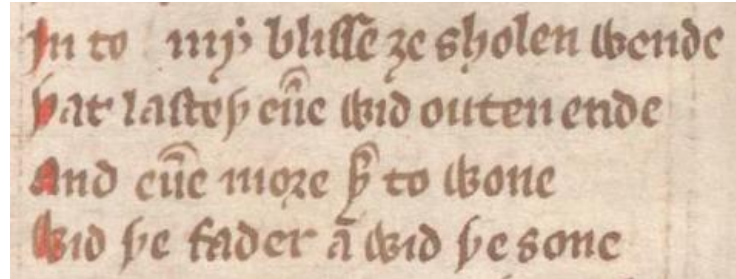 In to myˀ blisse ȝe sholen wende
Þat lasteþ eu̅e wid outen ende
And eu̅e more þ̅ to wone
Wid þe fader a̅ wid þe sone